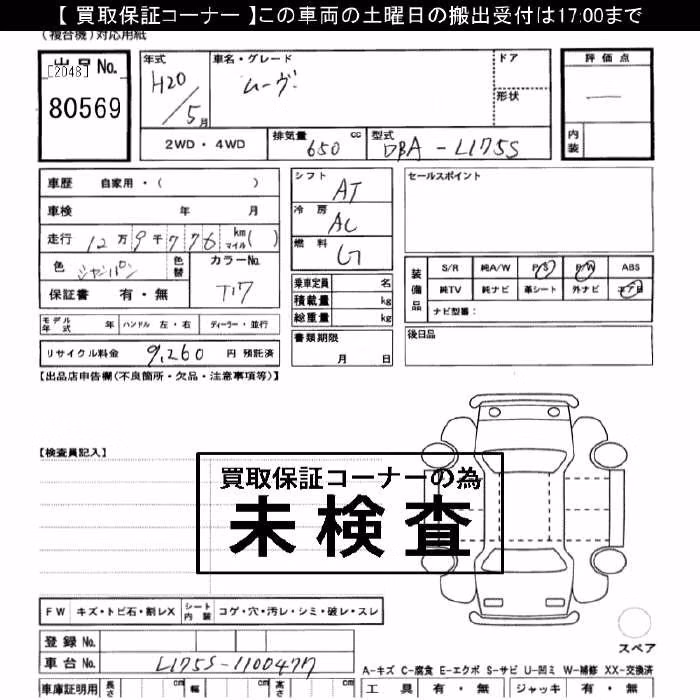 【 買取保証コーナー 】この車両の土曜日の搬出受付は17:00まで
(複合機)対応用紙
出品No.
[2048]
80569
年式
H20/5月
車名・グレード
ムーヴ
ドア
形状
評価点
—
内装
2WD・4WD
排気量 650 cc
型式 DBA-L175S
車歴 自家用・( )
車検 年 月
走行 12万9千776 km マイル ( )
色 シャンパン 色替
カラーNo. T17
保証書 有・無
シフト AT
冷房 AC
燃料 G
乗車定員 名
積載量 kg
総重量 kg
書類期限
月 日
セールスポイント
装備品
S/R 純A/W P/S P/W ABS
純TV 純ナビ 革シート 外ナビ エアB
ナビ型番:
後日品
モデル年式 年 ハンドル 左・右 ディーラー・並行
リサイクル料金 9,260 円 預託済
【出品店申告欄(不良箇所・欠品・注意事項等)】
【検査員記入】
買取保証コーナーの為
未検査
FW キズ・トビ石・割レX シート内装 コゲ・穴・汚レ・シミ・破レ・スレ
登録No.
車台No. L175S-1100477
スペア
A-キズ C-腐食 E-エクボ S-サビ U-凹ミ W-補修 XX-交換済
車庫証明用 長さ cm 幅 cm 高さ cm
工具 有・無 ジャッキ 有・無